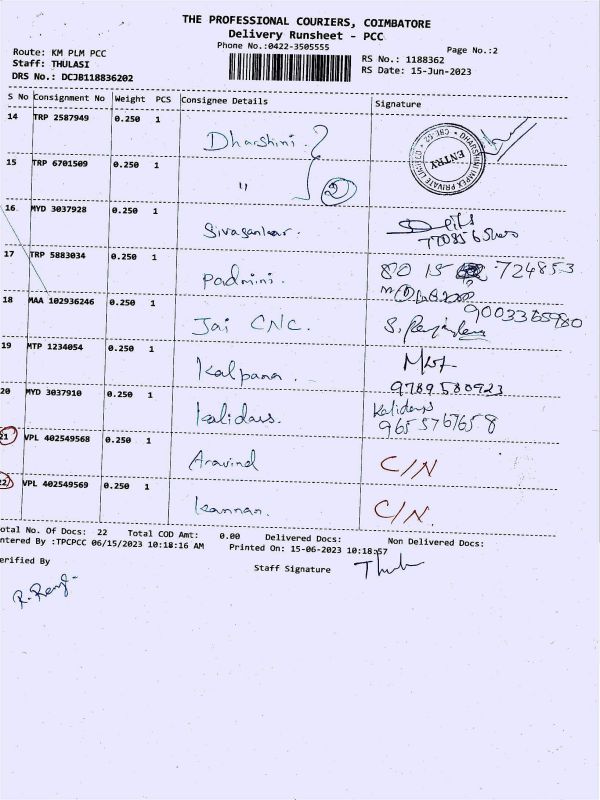 THE PROFESSIONAL COURIERS, COIMBATORE
Delivery Runsheet - PCC
Phone No.:0422-3505555
Page No.:2
Route: KM PLM PCC
Staff: THULASI
DRS No.: DCJB118836202
RS No.: 1188362
RS Date: 15-Jun-2023
S No Consignment No Weight PCS Consignee Details Signature
14 TRP 2587949 0.250 1 Dharshini.
DHARSHINI IMPEX PRIVATE LIMITED CBE-62
ENTRY
15 TRP 6701509 0.250 1 " 2
16 MYD 3037928 0.250 1 Sivasankar.
17 TRP 5883034 0.250 1 Padmini. 80 15 724853
18 MAA 102936246 0.250 1 Jai CNC. 9003365980
19 MTP 1234054 0.250 1 Kalpana. 9789580923
20 MYD 3037910 0.250 1 Kalidass. Kalidass
9655767658
21 VPL 402549568 0.250 1 Aravind C/N
22 VPL 402549569 0.250 1 Kannan. C/N.
otal No. Of Docs: 22 Total COD Amt: 0.00 Delivered Docs: Non Delivered Docs:
ntered By :TPCPCC 06/15/2023 10:18:16 AM Printed On: 15-06-2023 10:18:57
erified By Staff Signature